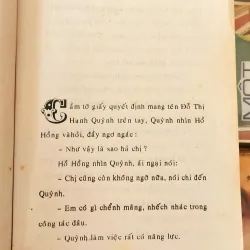 Cầm tờ giấy quyết định mang tên Đỗ Thị
Hạnh Quỳnh trên tay, Quỳnh nhìn Hồ
Hồng và hỏi, đầy ngơ ngác:
– Như vậy là sao hả chị?
Hồ Hồng nhìn Quỳnh, ái ngại nói:
– Chị cũng còn không ngờ nữa, nói chi đến
Quỳnh.
– Em có gì chểnh mảng, nhếch nhác trong
công tác đâu.
– Quỳnh làm việc rất có năng lực.